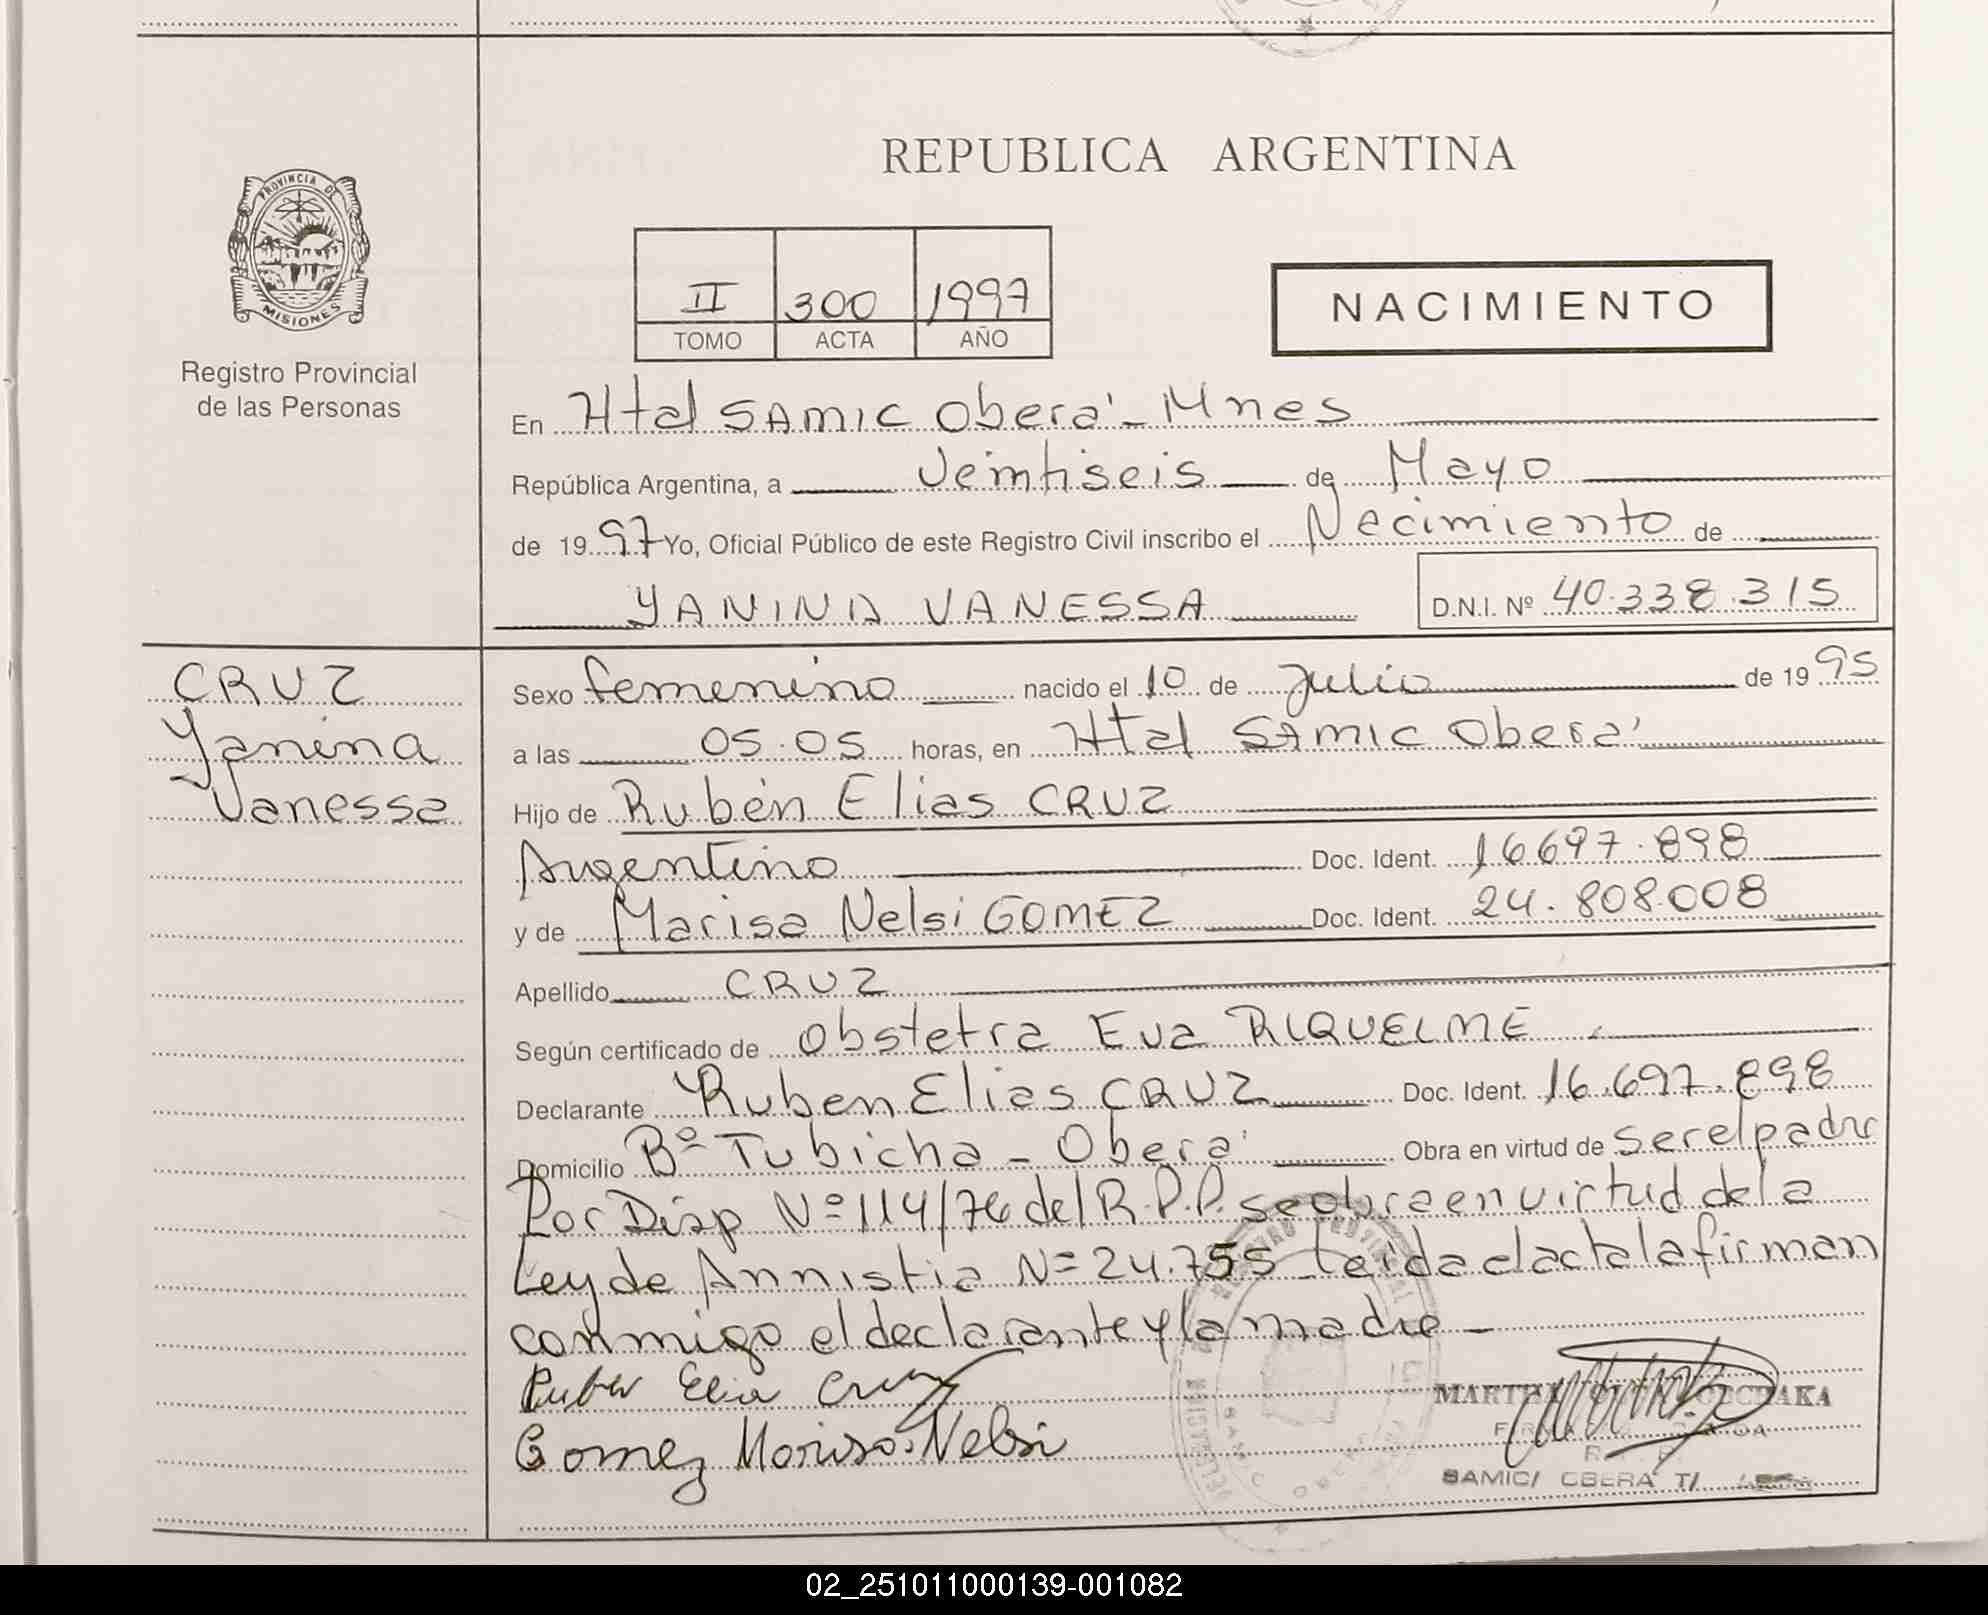 REPUBLICA ARGENTINA
PROVINCIA DE
MISIONES
Registro Provincial
de las Personas
II 300 1997
TOMO ACTA AÑO
NACIMIENTO
En Htal SAMIC Oberá - Mnes
República Argentina, a Veintiseis de Mayo
de 1997 Yo, Oficial Público de este Registro Civil inscribo el Nacimiento de
YANINA VANESSA D.N.I. Nº 40.338.315
CRUZ
Yanina
Vanessa
Sexo femenino nacido el 10 de Julio de 1995
a las 05.05 horas, en Htal SAMIC Oberá
Hijo de Rubén Elias CRUZ
Argentino Doc. Ident. 16697.898
y de Marisa Nelsi GOMEZ Doc. Ident. 24.808.008
Apellido CRUZ
Según certificado de Obstetra Eva RIQUELME
Declarante Ruben Elias CRUZ Doc. Ident. 16.697.898
Domicilio Bº Tubicha - Oberá Obra en virtud de ser el padre
Por Disp Nº 114/76 del R.P.P. se obra en virtud de la
Ley de Amnistia Nº 24.755 Leida el acta la firman
conmigo el declarante y la madre -
Ruben Elia Cruz
Gomez Marisa Nelsi
MARTHA
SAMIC/ OBERA T/
02_251011000139-001082